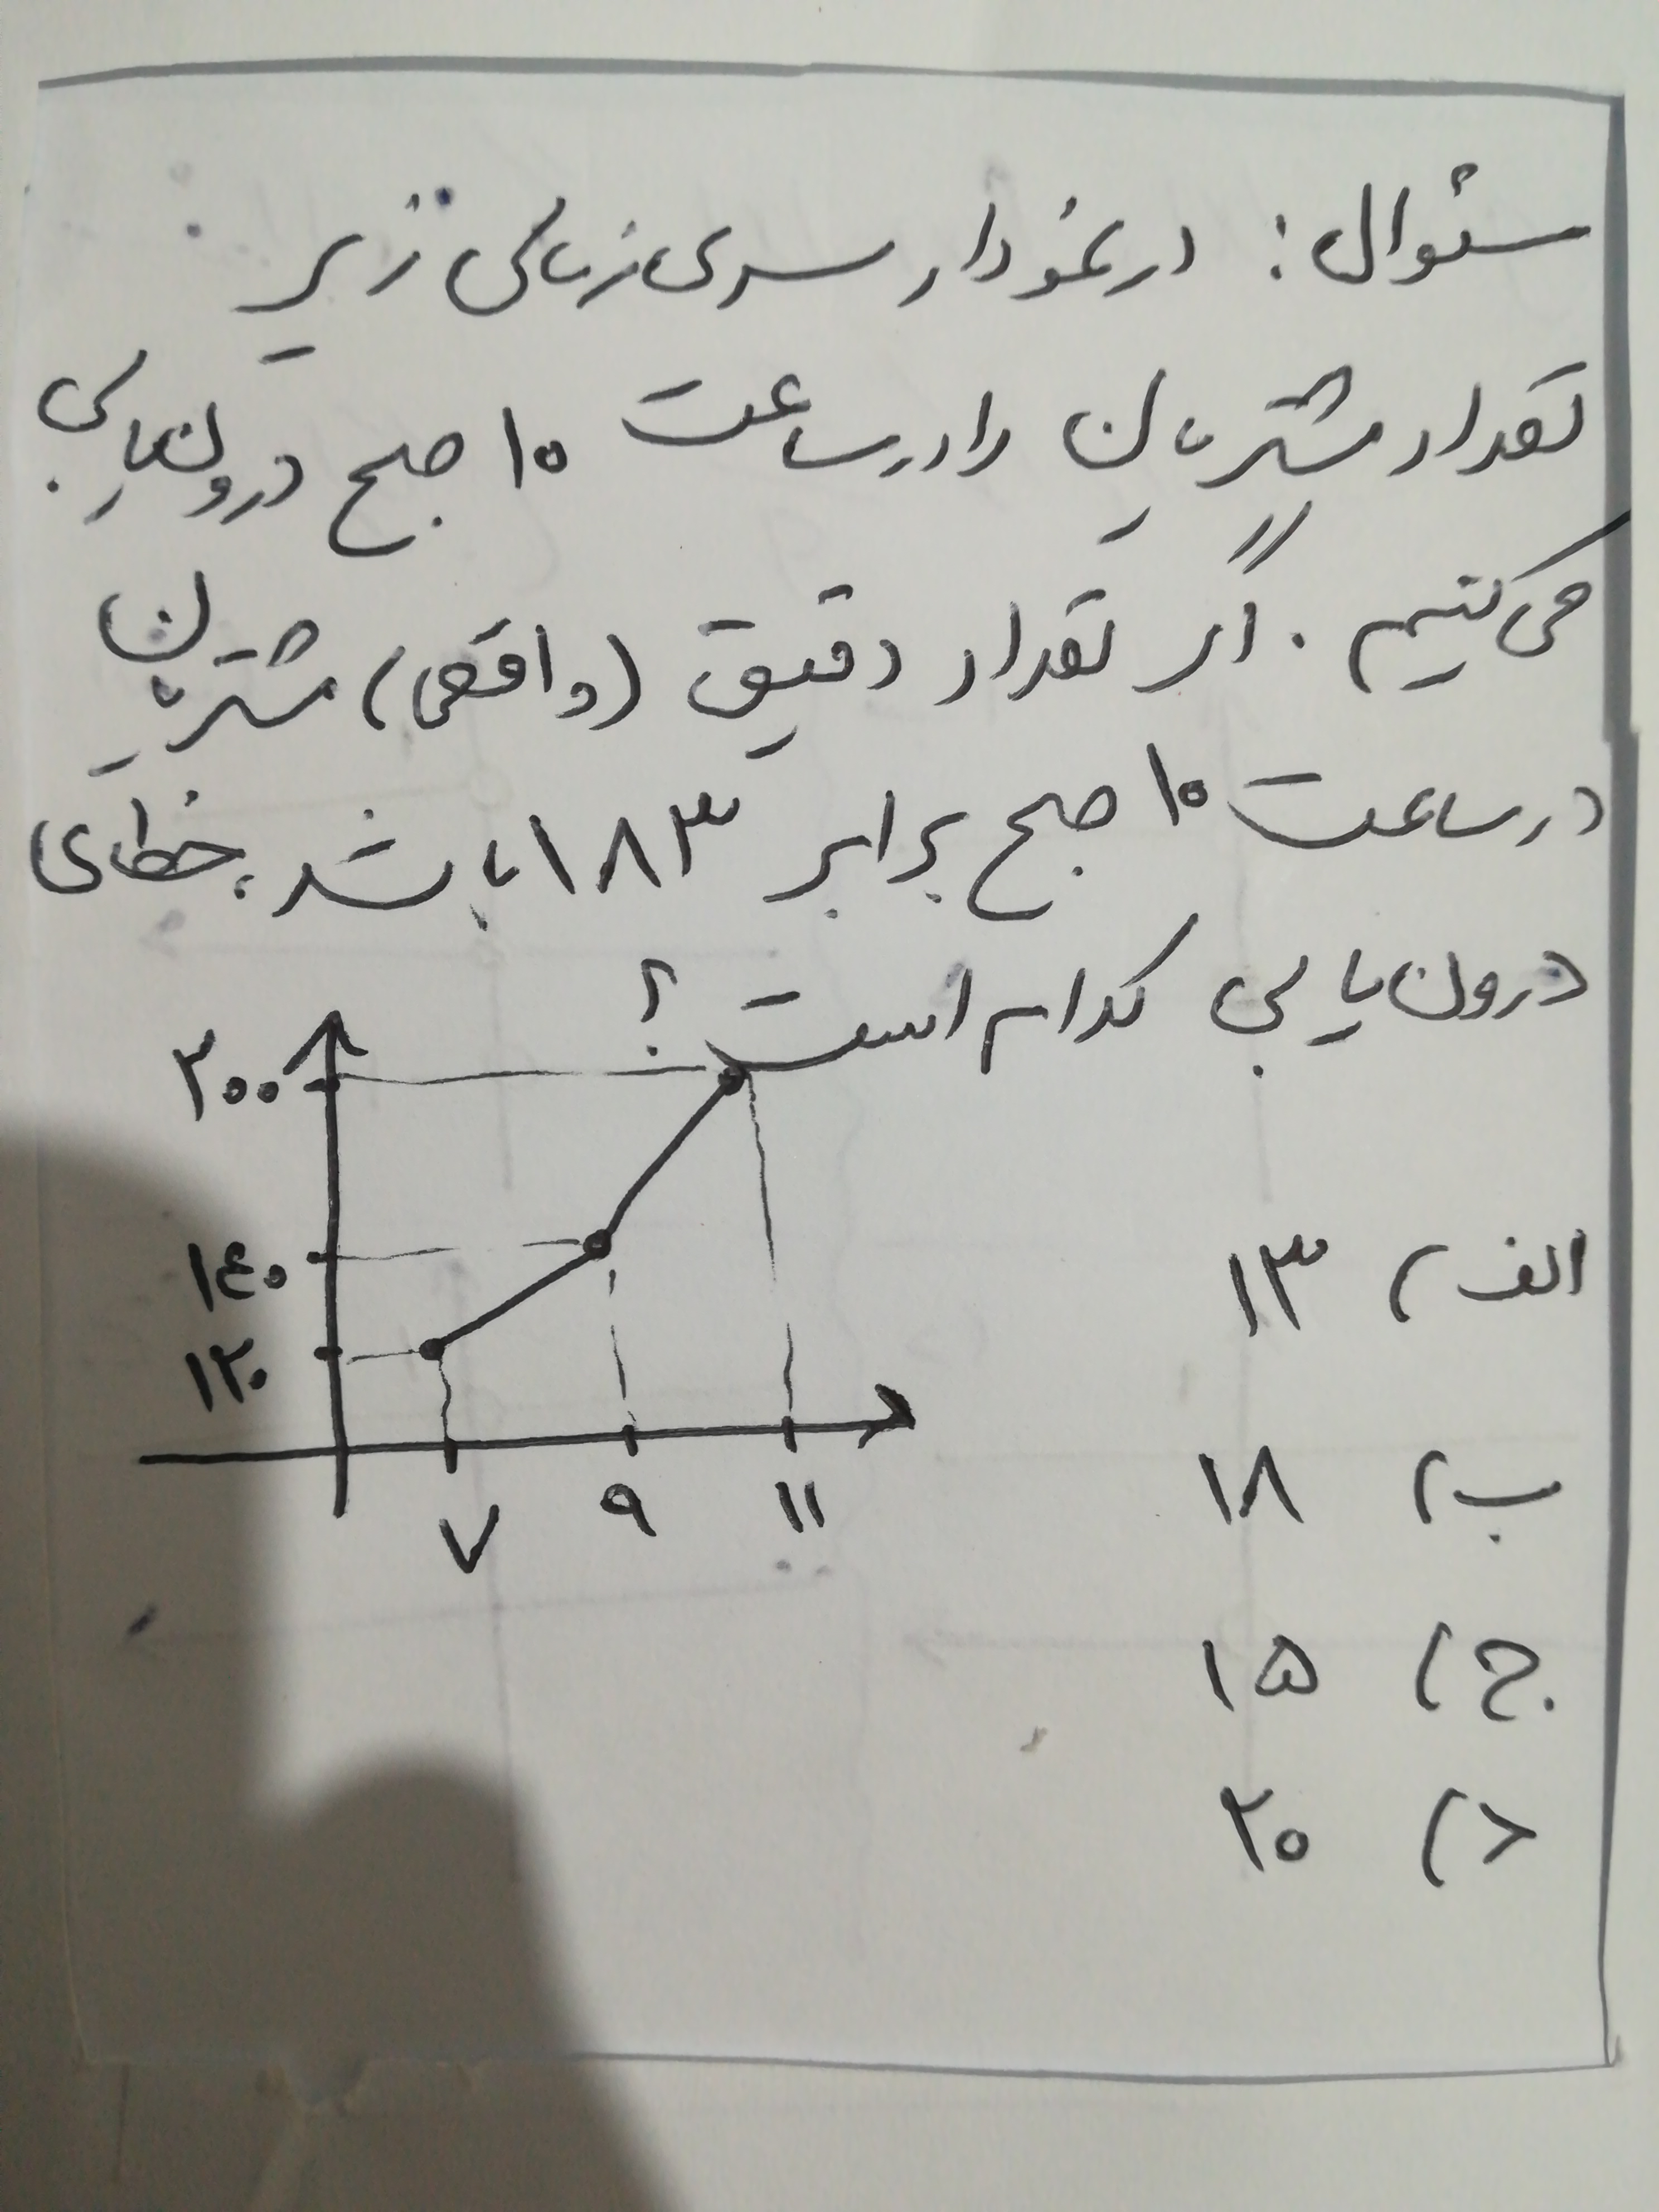 سئوال: در نمودار سری زمانی زیر
تعداد مشتریان را در ساعت ۱۰ صبح درون‌یابی
می‌کنیم. اگر تعداد دقیق (واقعی) مشتریان
در ساعت ۱۰ صبح برابر ۱۸۳ باشد، خطای
درون‌یابی کدام است؟
۲۰۰
۱۴۰
۱۲۰
۷ ۹ ۱۱
الف) ۱۳
ب) ۱۸
ج) ۱۵
د) ۲۰